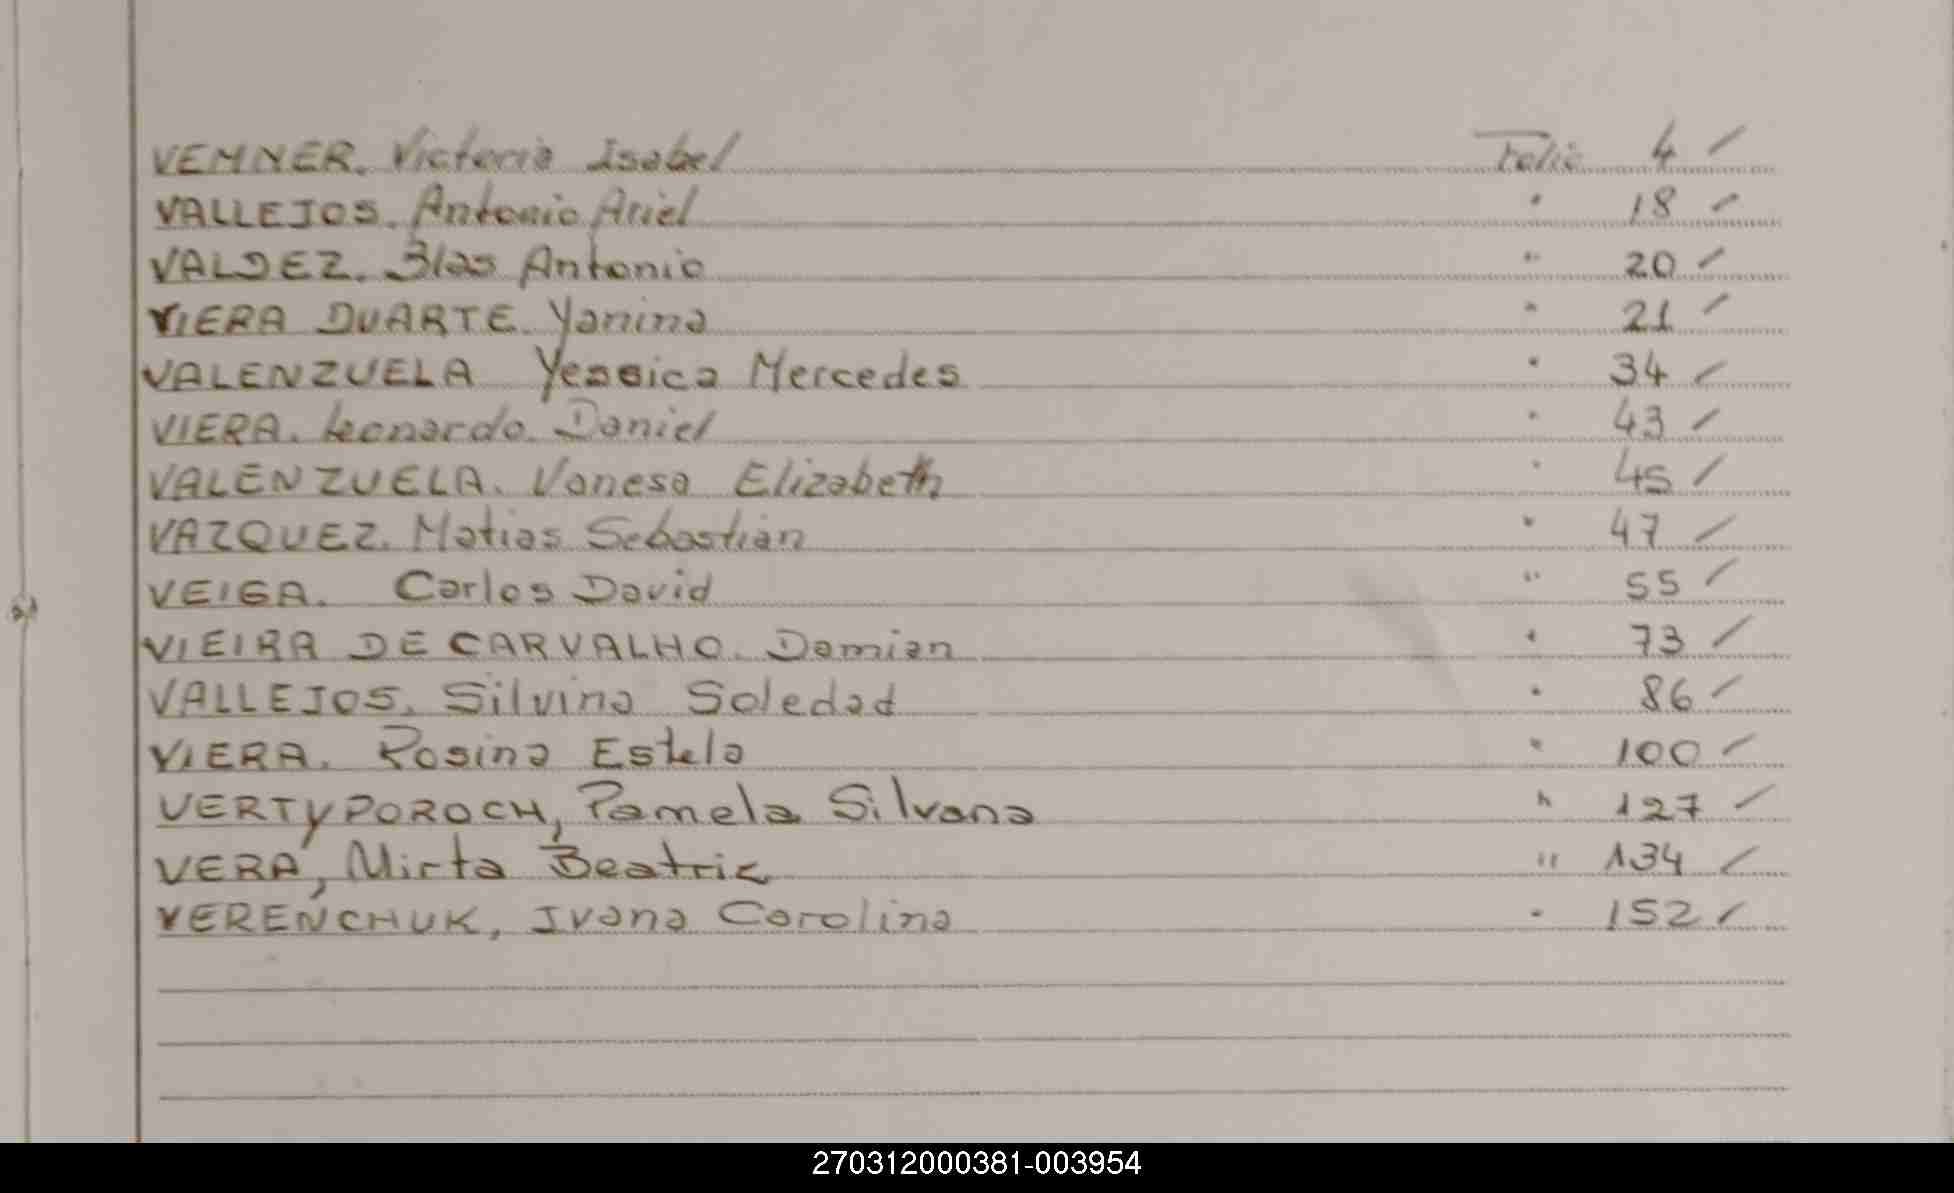 VEMNER. Victoria Isabel Folio 4 /
VALLEJOS. Antonio Ariel " 18 /
VALDEZ. Blas Antonio " 20 /
VIERA DUARTE. Yanina " 21 /
VALENZUELA Yessica Mercedes " 34 /
VIERA. Leonardo. Daniel " 43 /
VALENZUELA. Vanesa Elizabeth " 45 /
VAZQUEZ. Matias Sebastián " 47 /
VEIGA. Carlos David " 55 /
VIEIRA DE CARVALHO. Damian " 73 /
VALLEJOS. Silvina Soledad " 86 /
VIERA. Rosina Estela " 100 /
VERTYPOROCH, Pamela Silvana " 127 /
VERA, Mirta Beatriz " 134 /
VERENCHUK, Ivana Carolina " 152 /
270312000381-003954